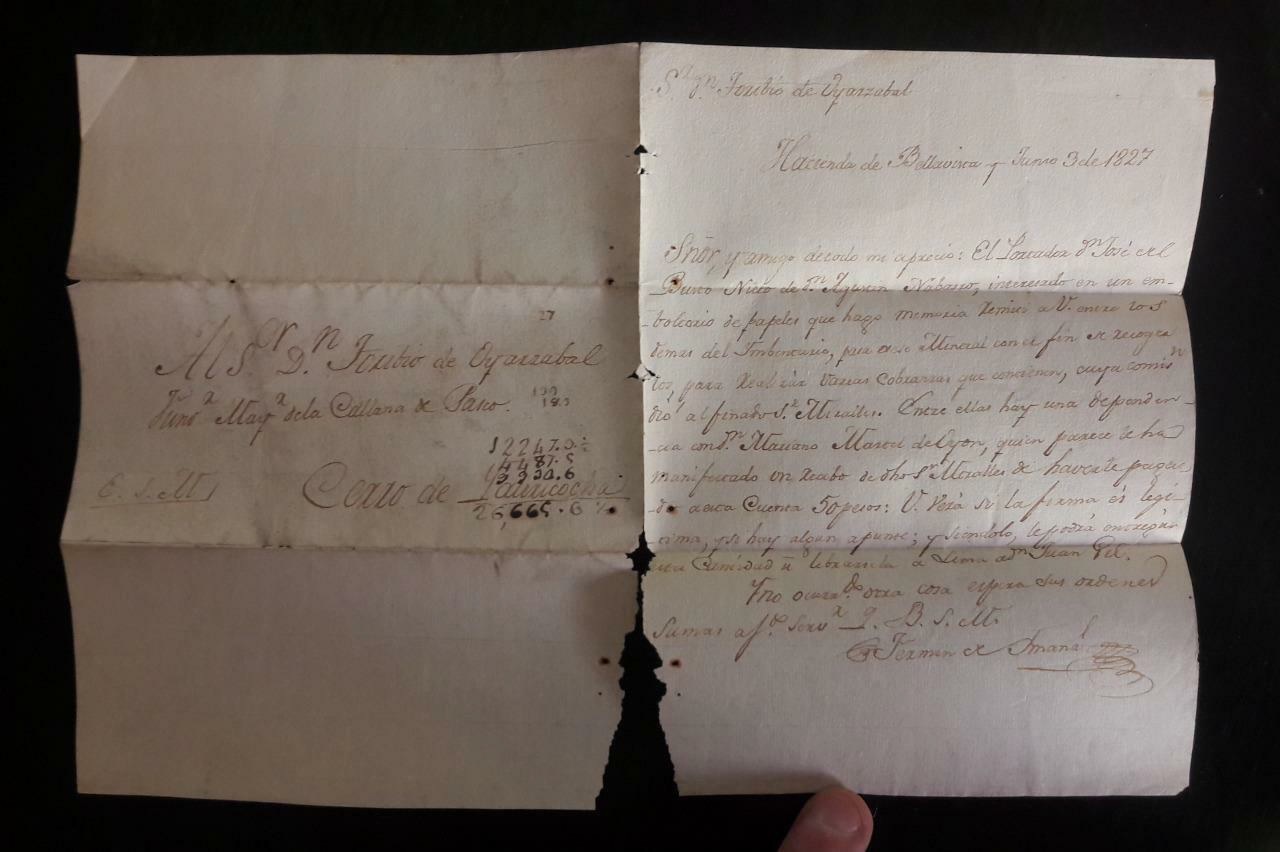 27
Al S.r D.n Toribio de Oyarzabal
May.r de la Callana de Pasco.
180
12247.0
4487.5
9930.6
Cerro de Yauricocha
26,665.6
S.r D.n Toribio de Oyarzabal
Hacienda de Bellavista y Junio 3 de 1827
Señor, y amigo de todo mi aprecio: El Portador D.n José del
Busto Nieto de D.n Agustin Nabarro, interesado en un em-
-boltorio de papeles que hago memoria remití a V. entre los
demas del Imbentario, para ese Mineral con el fin de recoger
los, para realizar varias cobranzas que contienen, cuya comis
dió al finado S.r Miralles. Entre ellas hay una dependen-
-cia con D.n Mariano Martel de Leyon, quien parece le ha
manifestado un recibo de dho S.r Miralles de haverle paga-
-do a esta Cuenta 50 pesos: V. verá si la firma és legi-
-tima, y si hay algun apunte; y siendolo, le podrá entregar
esta Cantidad u librarsela a Lima a D.n Juan Gil.
Y no otra cosa espera sus ordenes
su mas af.to serv.r Q. B. S. M.
Fermin de